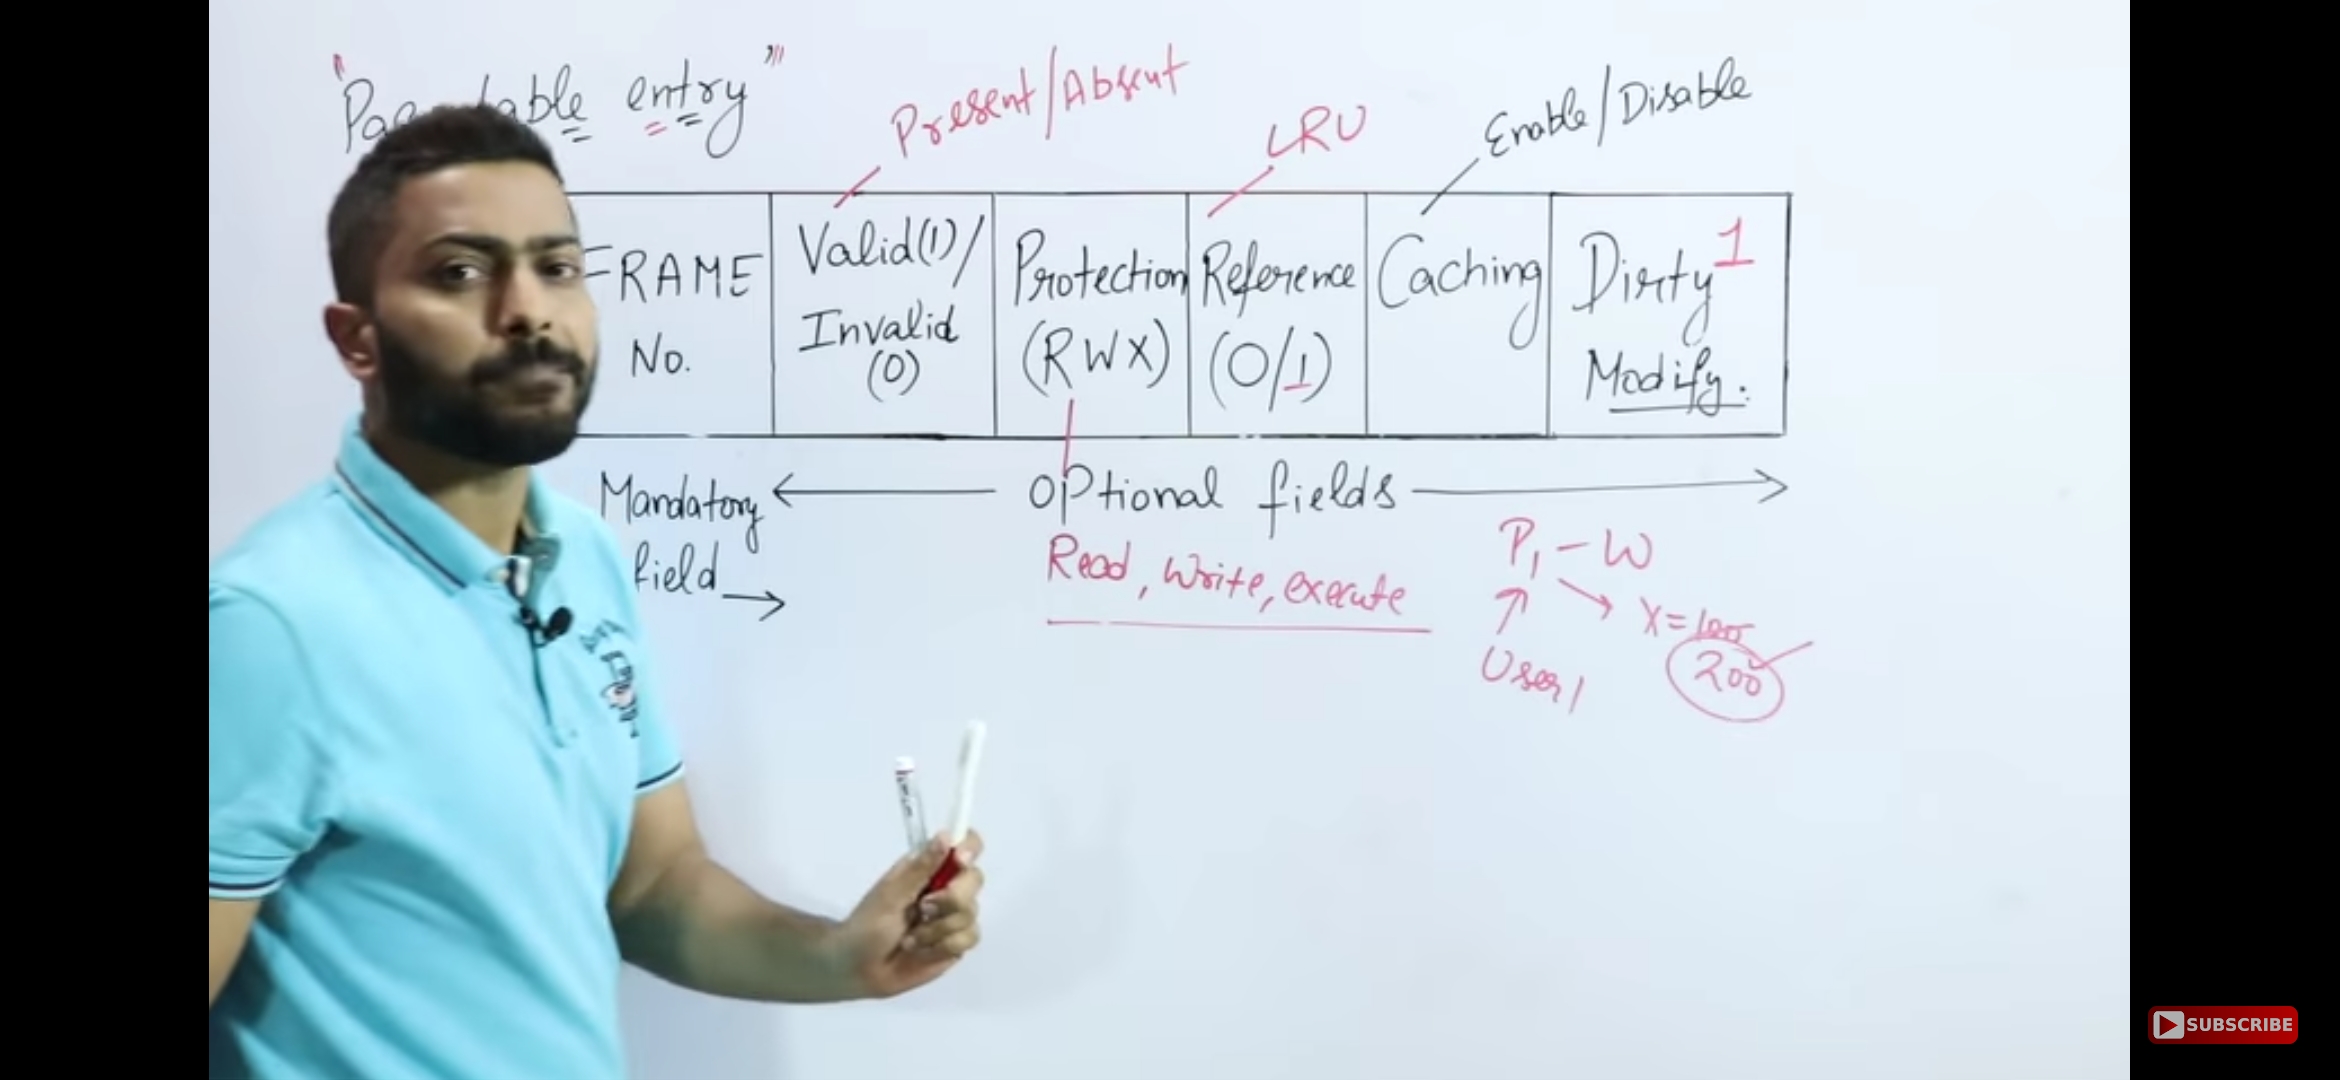 "Page table entry"
Present/Absent
LRU
Enable/Disable
FRAME No.
Valid(1)/
Invalid
(0)
Protection
(RWX)
Reference
(0/1)
Caching
Dirty 1
Modify.
Mandatory
field
Optional fields
Read, Write, execute
P1 - W
User1
X=100
200
SUBSCRIBE